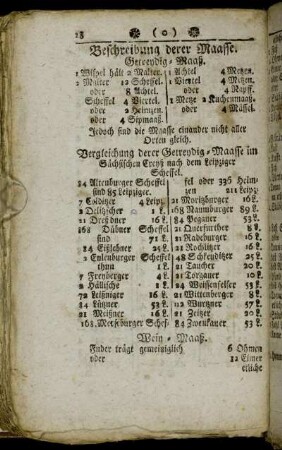 28 ❋ (o) ❋
Beschreibung derer Maasse.
Getreydig-Maaß.
1 Wispel hält 2 Malter.
2 Malter 12 Scheffel.
oder 8 Achtel.
Scheffel 4 Viertel.
oder 2 Heimzen.
oder 4 Sipmaaß.
1 Achtel 4 Metzen.
1 Viertel 4 Metzen.
oder 4 Napff.
1 Metze 2 Kuchenmaaß.
oder 4 Mässel.
Jedoch sind die Maasse einander nicht aller
Orten gleich.
Vergleichung derer Getreydig-Maasse im
Sächsischen Creyß nach dem Leipziger
Scheffel.
24 Altenburger Scheffel
sind 85 Leipziger.
7 Colditzer 4 Leipz.
2 Delitzscher 1 L.
21 Dreßdner 16 L.
168 Dübner Scheffel
sind 71 L.
84 Eißlebner 25 L.
2 Eulenburger Scheffel
thun 1 L.
7 Freyberger 4 L.
2 Hällische 1 L.
72 Leißniger 16 L.
84 Lützner 53 L.
21 Meißner 16 L.
168. Merseburger Schef-
fel oder 336 Heim-
zen 211 Leipz
21 Moritzburger 16 L.
168 Naumburger 89 L.
84 Pegauer 53 L.
21 Querfurther 8 L.
21 Radeburger 16 L.
21 Rochlitzer 16 L.
48 Schkeuditzer 25 L.
21 Taucher 20 L.
21 Torgauer 16 L.
24 Weissenfelser 53 L.
21 Wittenberger 8 L.
112 Wurtzner 57 L.
21 Zeitzer 20 L.
84 Zwenkauer 53 L.
Wein-Maaß.
Fuder trägt gemeiniglich 6 Ohmen
oder 12 Eimer
etliche